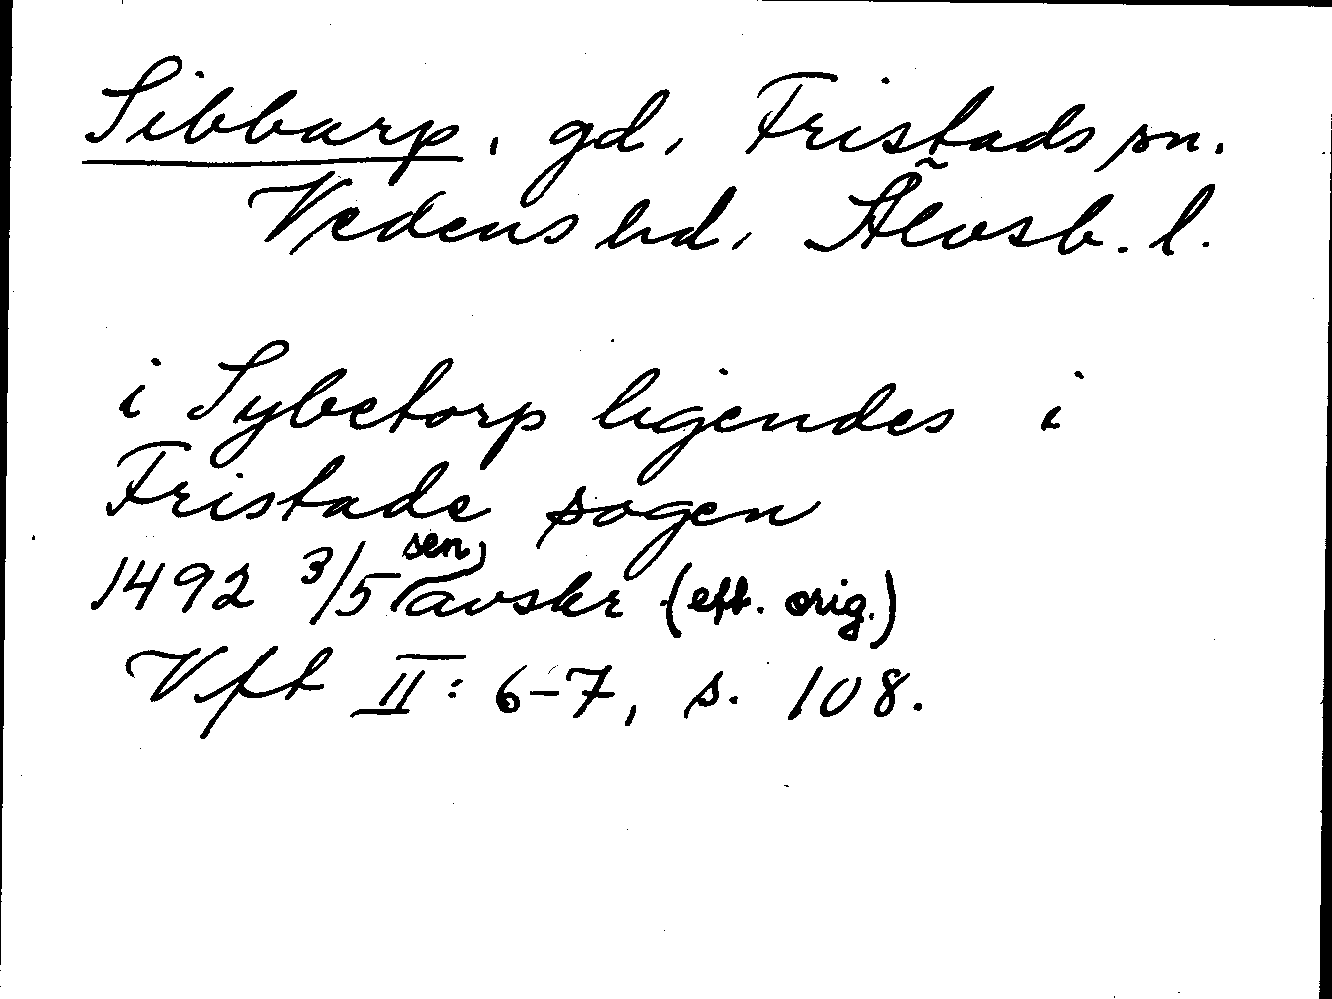 Sibbarp, gd, Fristads sn.
Vedens hd, Älvsb. l.
i Sybetorp ligendes i
Fristade sogen
1492 3/5 sen, avskr (eft. orig.)
Vft II: 6-7, s. 108.